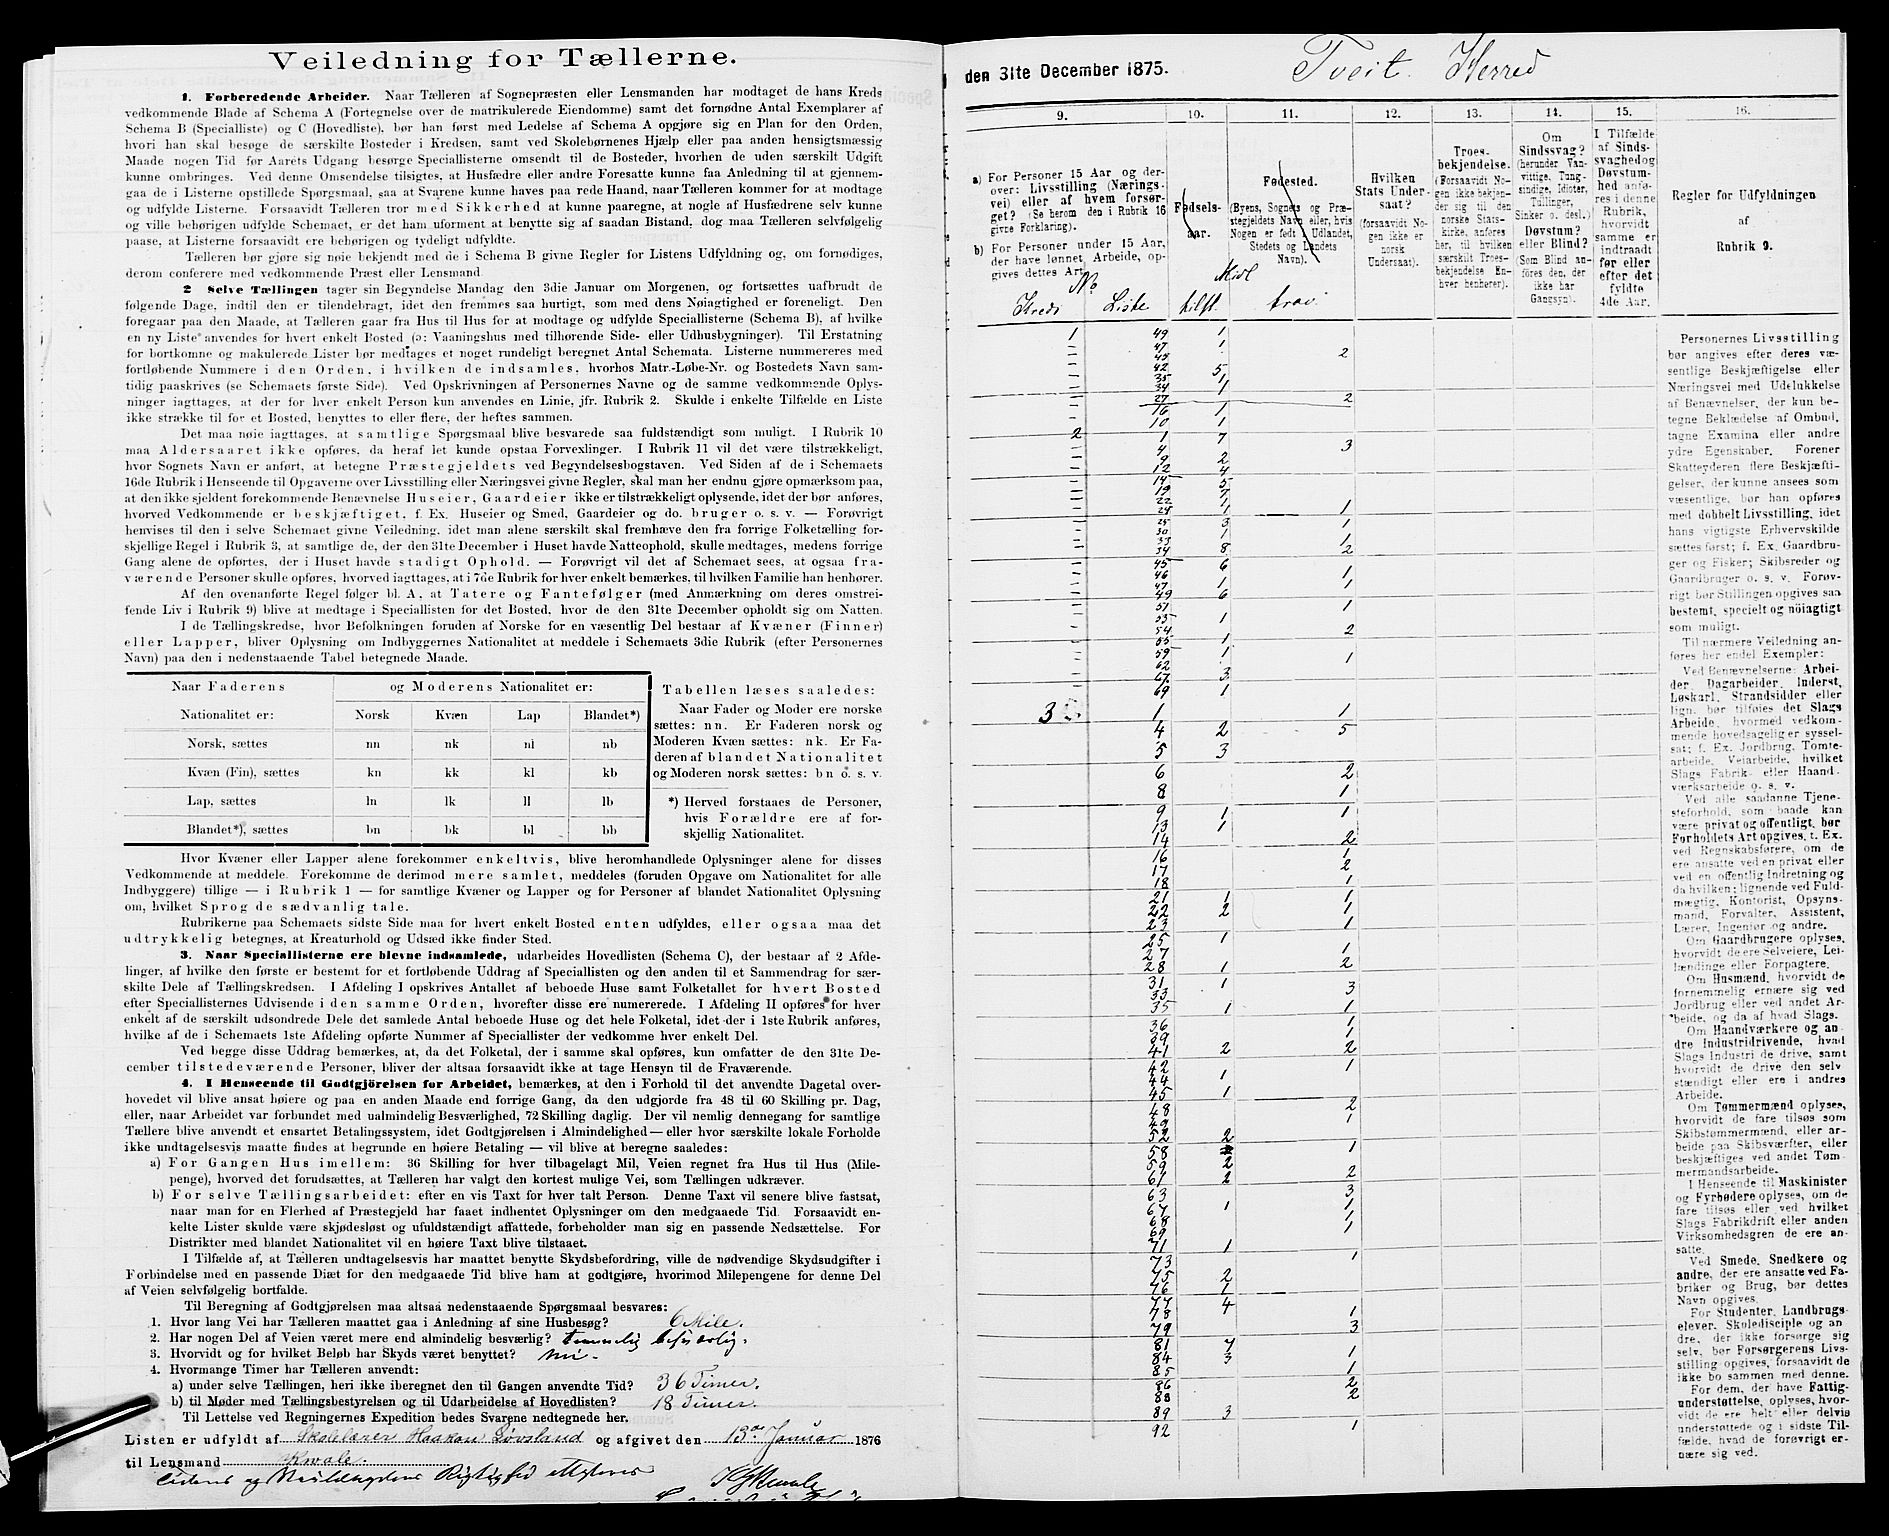 Veiledning for Tællerne.
1. Forberedende Arbeider. Naar Tælleren af Sognepræsten eller Lensmanden har modtaget de hans Kreds
vedkommende Blade af Schema A (Fortegnelse over de matrikulerede Eiendomme) samt det fornødne Antal Exemplarer af
Schema B (Specialliste) og C (Hovedliste), bør han først med Ledelse af Schema A opgjøre sig en Plan for den Orden,
hvori han skal besøge de særskilte Bosteder i Kredsen, samt ved Skolebørnenes Hjælp eller paa anden hensigtsmæssig
Maade nogen Tid før Aarets Udgang besørge Speciallisterne omsendt til de Bosteder, hvorhen de uden særskilt Udgift
kunne ombringes. Ved denne Omsendelse tilsigtes, at Husfædre eller andre Foresatte kunne faa Anledning til at gjennem-
gaa de i Listerne opstillede Spørgsmaal, saa at Svarene kunne haves paa rede Haand, naar Tælleren kommer for at modtage
og udfylde Listerne. Forsaavidt Tælleren tror med Sikkerhed at kunne paaregne, at nogle af Husfædrene selv kunne
og ville behørigen udfylde Schemaet, er det ham uforment at benytte sig af saadan Bistand, dog maa Tælleren selvfølgelig
paase, at Listerne forsaavidt ere behørigen og tydeligt udfyldte.
Tælleren bør gjøre sig nøie bekjendt med de i Schema B givne Regler for Listens Udfyldning og, om fornødiges,
derom conferere med vedkommende Præst eller Lensmand.
2 Selve Tællingen tager sin Begyndelse Mandag den 3die Januar om Morgenen, og fortsættes uafbrudt de
følgende Dage, indtil den er tilendebragt, idet den fremmes saa hurtigt, som med dens Nøiagtighed er foreneligt. Den
foregaar paa den Maade, at Tælleren gaar fra Hus til Hus for at modtage og udfylde Speciallisterne (Schema B), af hvilke
en ny Liste anvendes for hvert enkelt Bosted (ɔ: Vaaningshus med tilhørende Side- eller Udhusbygninger). Til Erstatning
for bortkomne og makulerede Lister bør medtages et noget rundeligt beregnet Antal Schemata. Listerne nummereres med
fortløbende Nummere i den Orden, i hvilken de indsamles, hvorhos Matr.-Løbe-Nr. og Bostedets Navn sam-
tidig paaskrives (se Schemaets første Side). Ved Opskrivningen af Personernes Navne og de samme vedkommende Oplys-
ninger iagttages, at der for hver enkelt Person kun anvendes en Linie, jfr. Rubrik 2. Skulde i enkelte Tilfælde en Liste
ikke strække til for et Bosted, benyttes to eller flere, der heftes sammen.
Det maa nøie iagttages, at samtlige Spørgsmaal blive besvarede saa fuldstændigt som muligt. I Rubrik 10
maa Aldersaaret ikke opføres, da heraf let kunde opstaa Forvexlinger. I Rubrik 11 vil det være tilstrækkeligt,
hvor Sognets Navn er anført, at betegne Præstegjeldets ved Begyndelsesbogstaven. Ved Siden af de i Schemaets
16de Rubrik i Henseende til Opgaverne over Livsstilling eller Næringsvei givne Regler, skal man her endnu gjøre opmærksom paa,
at den ikke sjeldent forekommende Benævnelse Huseier, Gaardeier ikke er tilstrækkeligt oplysende, idet der bør anføres,
hvorved Vedkommende er beskjæftiget, f. Ex. Huseier og Smed, Gaardeier og do. bruger o. s. v. — Forøvrigt
henvises til den i selve Schemaet givne Veiledning, idet man alene særskilt skal fremhæve den fra forrige Folketælling for-
skjellige Regel i Rubrik 3, at samtlige de, der den 31te December i Huset havde Natteophold, skulle medtages, medens forrige
Gang alene de opførtes, der i Huset havde stadigt Ophold. — Forøvrigt vil det af Schemaet sees, at ogsaa fra-
værende Personer skulle opføres, hvorved iagttages, at i 7de Rubrik for hver enkelt bemærkes, til hvilken Familie han henhører.
Af den ovenanførte Regel følger bl. A, at Tatere og Fantefølger (med Anmærkning om deres omstrei-
fende Liv i Rubrik 9) blive at medtage i Speciallisten for det Bosted, hvor de den 31te December opholdt sig om Natten.
I de Tællingskredse, hvor Befolkningen foruden af Norske for en væsentlig Del bestaar af Kvæner (Finner)
eller Lapper, bliver Oplysning om Indbyggernes Nationalitet at meddele i Schemaets 3die Rubrik (efter Personernes
Navn) paa den i nedenstaaende Tabel betegnede Maade.
Naar Faderens og Moderens Nationalitet er:
Nationalitet er: Norsk Kvæn Lap Blandet*)
Norsk, sættes nn nk nl nb
Kvæn (Fin), sættes kn kk kl kb
Lap, sættes ln lk ll lb
Blandet*), sættes bn bk bl bb
Tabellen læses saaledes:
Naar Fader og Moder ere norske
sættes: nn. Er Faderen norsk og
Moderen Kvæn sættes: nk. Er Fa-
deren af blandet Nationalitet
og Moderen norsk sættes: bn o. s. v.
*) Herved forstaaes de Personer,
hvis Forældre ere af for-
skjellig Nationalitet.
Hvor Kvæner eller Lapper alene forekommer enkeltvis, blive heromhandlede Oplysninger alene for disses
Vedkommende at meddele. Forekomme de derimod mere samlet, meddeles (foruden Opgave om Nationalitet for alle
Indbyggere) tillige — i Rubrik 1 — for samtlige Kvæner og Lapper og for Personer af blandet Nationalitet Oplysning
om, hvilket Sprog de sædvanlig tale.
Rubrikerne paa Schemaets sidste Side maa for hvert enkelt Bosted enten udfyldes, eller ogsaa maa det
udtrykkelig betegnes, at Kreaturhold og Udsæd ikke finder Sted.
3. Naar Speciallisterne ere blevne indsamlede, udarbeides Hovedlisten (Schema C), der bestaar af 2 Afde-
linger, af hvilke den første er bestemt for et fortløbende Uddrag af Speciallisten og den anden til et Sammendrag for sær-
skilte Dele af Tællingskredsen. I Afdeling I opskrives Antallet af beboede Huse samt Folketallet for hvert Bosted
efter Speciallisternes Udvisende i den samme Orden, hvorefter disse ere numererede. I Afdeling II opføres for hver
enkelt af de særskilt udsondrede Dele det samlede Antal beboede Huse og det hele Folketal, idet der i 1ste Rubrik anføres,
hvilke af de i Schemaets 1ste Afdeling opførte Nummer af Speciallister der vedkomme hver enkelt Del.
Ved begge disse Uddrag bemærkes, at, da det Folketal, der i samme skal opføres, kun omfatter de den 31te De-
cember tilstedeværende Personer, bliver der altsaa forsaavidt ikke at tage Hensyn til de Fraværende.
4. I Henseende til Godtgjörelsen for Arbeidet, bemærkes, at den i Forhold til det anvendte Dagetal over-
hovedet vil blive ansat høiere og paa en anden Maade end forrige Gang, da den udgjorde fra 48 til 60 Skilling pr. Dag,
eller, naar Arbeidet var forbundet med ualmindelig Besværlighed, 72 Skilling daglig. Der vil nemlig dennegang for samtlige
Tællere blive anvendt et ensartet Betalingssystem, idet Godtgjörelsen i Almindelighed — eller hvor særskilte lokale Forholde
ikke undtagelsesvis maatte findes at begrunde en høiere Betaling — vil blive at beregne saaledes:
a) For Gangen Hus imellem: 36 Skilling for hver tilbagelagt Mil, Veien regnet fra Hus til Hus (Mile-
penge), hvorved det forudsættes, at Tælleren har valgt den kortest mulige Vei, som Tællingen udkræver.
b) For selve Tællingsarbeidet: efter en vis Taxt for hver talt Person. Denne Taxt vil senere blive fastsat,
naar man for en Flerhed af Præstegjeld har faaet indhentet Oplysninger om den medgaaede Tid. Forsaavidt en-
kelte Lister skulde være skjødesløst og ufuldstændigt affattede, forbeholder man sig en passende Nedsættelse. For
Distrikter med blandet Nationalitet vil en høiere Taxt blive tilstaaet.
I Tilfælde af, at Tælleren undtagelsesvis har maattet benytte Skydsbefordring, ville de nødvendige Skydsudgifter i
Forbindelse med en passende Diæt for den medgaaede Tid blive ham at godtgjøre, hvorimod Milepengene for denne Del
af Veien selvfølgelig bortfalde.
Til Beregning af Godtgjörelsen maa altsaa nedenstaaende Spørgsmaal besvares:
1. Hvor lang Vei har Tælleren maattet gaa i Anledning af sine Husbesøg? 6 Mile.
2. Har nogen Del af Veien været mere end almindelig besværlig? temmelig besværlig.
3. Hvorvidt og for hvilket Beløb har Skyds været benyttet?
4. Hvormange Timer har Tælleren anvendt:
a) under selve Tællingen, heri ikke iberegnet den til Gangen anvendte Tid? 36 Timer.
b) til Møder med Tællingsbestyrelsen og til Udarbeidelse af Hovedlisten? 18 Timer.
Til Lettelse ved Regningernes Expedition bedes Svarene nedtegnede her.
Listen er udfyldt af Skolelærer Haakon Løvsland og afgivet den 13de Januar 1876
til Lensmand Kvale.
og Rigtighed attesteres
den 31te December 1875. Tveit Herred
9. 10. 11. 12. 13. 14. 15. 16.
a) For Personer 15 Aar og der-
over: Livsstilling (Nærings-
vei) eller af hvem forsør-
get? (Se herom den i Rubrik 16
givne Forklaring).
b) For Personer under 15 Aar,
der have lønnet Arbeide, op-
gives dettes Art.
Fødsels-
aar.
Fødested.
(Byens, Sognets og Præ-
stegjeldets Navn eller, hvis
Nogen er født i Udlandet,
Stedets og Landets
Navn).
Hvilken
Stats Under-
saat?
(forsaavidt No-
gen ikke er
norsk
Undersaat).
Troes-
bekjendelse.
(Forsaavidt No-
gen ikke bekjen-
der sig til den
norske Stats-
kirke, anføres
her, til hvilken
særskilt Troes-
bekjendelse En-
hver henhører).
Om
Sindssvag?
(herunder Van-
vittige, Tung-
sindige, Idioter,
Tullinger,
Sinker o. desl.)
Døvstum?
eller Blind?
(Som Blind an-
føres den, der
ikke har
Gangsyn).
I Tilfælde
af Sinds-
svaghed og
Døvstum-
hed anfø-
res i denne
Rubrik,
hvorvidt
samme er
indtraadt
før eller
efter det
fyldte
4de Aar.
Regler for Udfyldningen
af
Rubrik 9.
No Midl
Kreds Liste tilst. frav.
1 49 1
47 1
45 2
42 5
35 1
34 1
27 2
16 1
10 1
2 1 7
4 3
9 2
12 4
15 5
19 7
22 1
24 1 1
25 3 1
30 1
33 1
34 8 2
45 6
46 1
47 1 1
49 6
51 1
53 1
54 2
55 1
59 1
62 1
67 3
69 1
3 1 1
4 2 5
5 3
6 2
8 1
9 1 1
13 1
14 2
16 1
17 2
18 1
21 1 1
22 2 1
23 1
25 1
27 1
28 1 2
31 1
33 3
35 1 1
36 1
39 1
41 2 2
42 1
44 1
45 1
48 2
49 1
52 2
58 1
59 2
61 2 2
63 3
67 1 1
68 1
69 1
71 1
73 1
75 2
76 1
77 4
78 1
79 3
81 7
84 3 1
85 1
86 2
88 2
89 3
92 1
Personernes Livsstilling
bør angives efter deres væ-
sentlige Beskjæftigelse eller
Næringsvei med Udelukkelse
af Benævnelser, der kun be-
tegne Beklædelse af Ombud,
tagne Examina eller andre
ydre Egenskaber. Forener
Skatteyderen flere Beskjæfti-
gelser, der kunne ansees som
væsentlige, bør han opføres
med dobbelt Livsstilling, idet
hans vigtigste Erhvervskilde
sættes først; f. Ex. Gaardbru-
ger og Fisker; Skibsreder og
Gaardbruger o. s. v. Forøv-
rigt bør Stillingen opgives saa
bestemt, specielt og nöiagtigt
som muligt.
Til nærmere Veiledning an-
føres her endel Exempler:
Ved Benævnelserne: Arbei-
der, Dagarbeider, Inderst,
Løskarl, Strandsidder eller
lign. bør tilføies det Slags
Arbeide, hvormed vedkom-
mende hovedsagelig er syssel-
sat; f. Ex. Jordbrug, Tomte-
arbeide, Veiarbeide, hvilket
Slags Fabrik- eller Haand-
værksarbeide o. s. v.
Ved alle saadanne Tjene-
steforhold, som baade kan
være privat og offentligt, bør
Forholdets Art opgives, t. Ex.
ved Regnskabsførere, om de
ere ansatte ved en privat eller
ved en offentlig Indretning og
da hvilken; lignende ved Fuld-
mægtig, Kontorist, Opsyns-
mand, Forvalter, Assistent,
Lærer, Ingeniør og andre.
Om Gaardbrugere oplyses,
hvorvidt de ere Selveiere, Lei-
lændinge eller Forpagtere.
Om Husmænd, hvorvidt de
fornemmelig ernære sig ved
Jordbrug eller ved andet Ar-
beide, og da af hvad Slags.
Om Haandværkere og an-
dre Industridrivende, hvad
Slags Industri de drive, samt
hvorvidt de drive den selv-
stændigt eller ere i andres
Arbeide.
Om Tømmermænd oplyses,
hvorvidt de fare tilsøs som
Skibstømmermænd, eller ar-
beide paa Skibsværfter, eller
beskjæftiges ved andet Tøm-
mermandsarbeide.
I Henseende til Maskinister
og Fyrbødere oplyses, om de
fare tilsøs eller ved hvilket
Slags Fabrikdrift eller anden
Virksomhedsgren de ere an-
satte.
Ved Smede, Snedkere og
andre, der ere ansatte ved Fa-
briker og Brug, bør dettes
Navn opgives.
For Studenter, Landbrugs-
elever, Skoledisciple og an-
dre, der ikke forsørge sig
selv, bør Forsørgerens Livs-
stilling opgives, forsaavidt de
ikke bo sammen med denne.
For dem, der have Fattig-
understøttelse, oplyses, hvor-
vidt de ere helt eller delvis
understøttede og i sidste Til-
fælde, hvad de forøvrigt er-
nære sig ved.